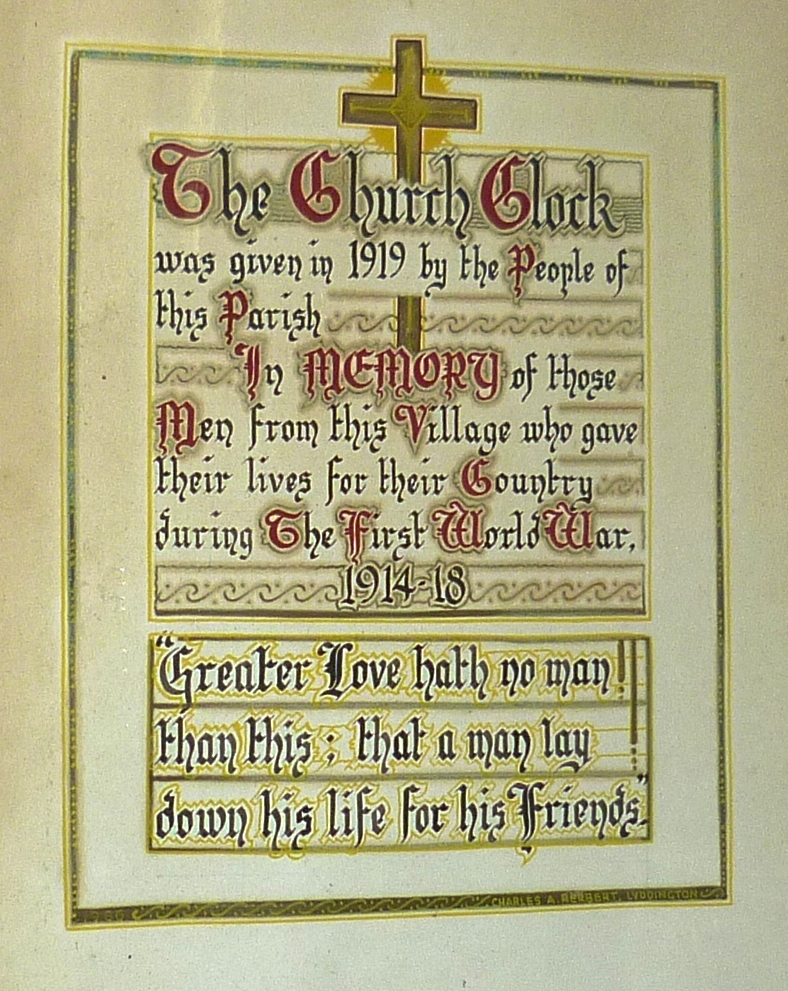 The Church Clock
was given in 1919 by the People of
this Parish
In MEMORY of those
Men from this Village who gave
their lives for their Country
during The First World War,
1914-18
"Greater Love hath no man
than this; that a man lay
down his life for his Friends."
CHARLES A. HERBERT. LYDDINGTON